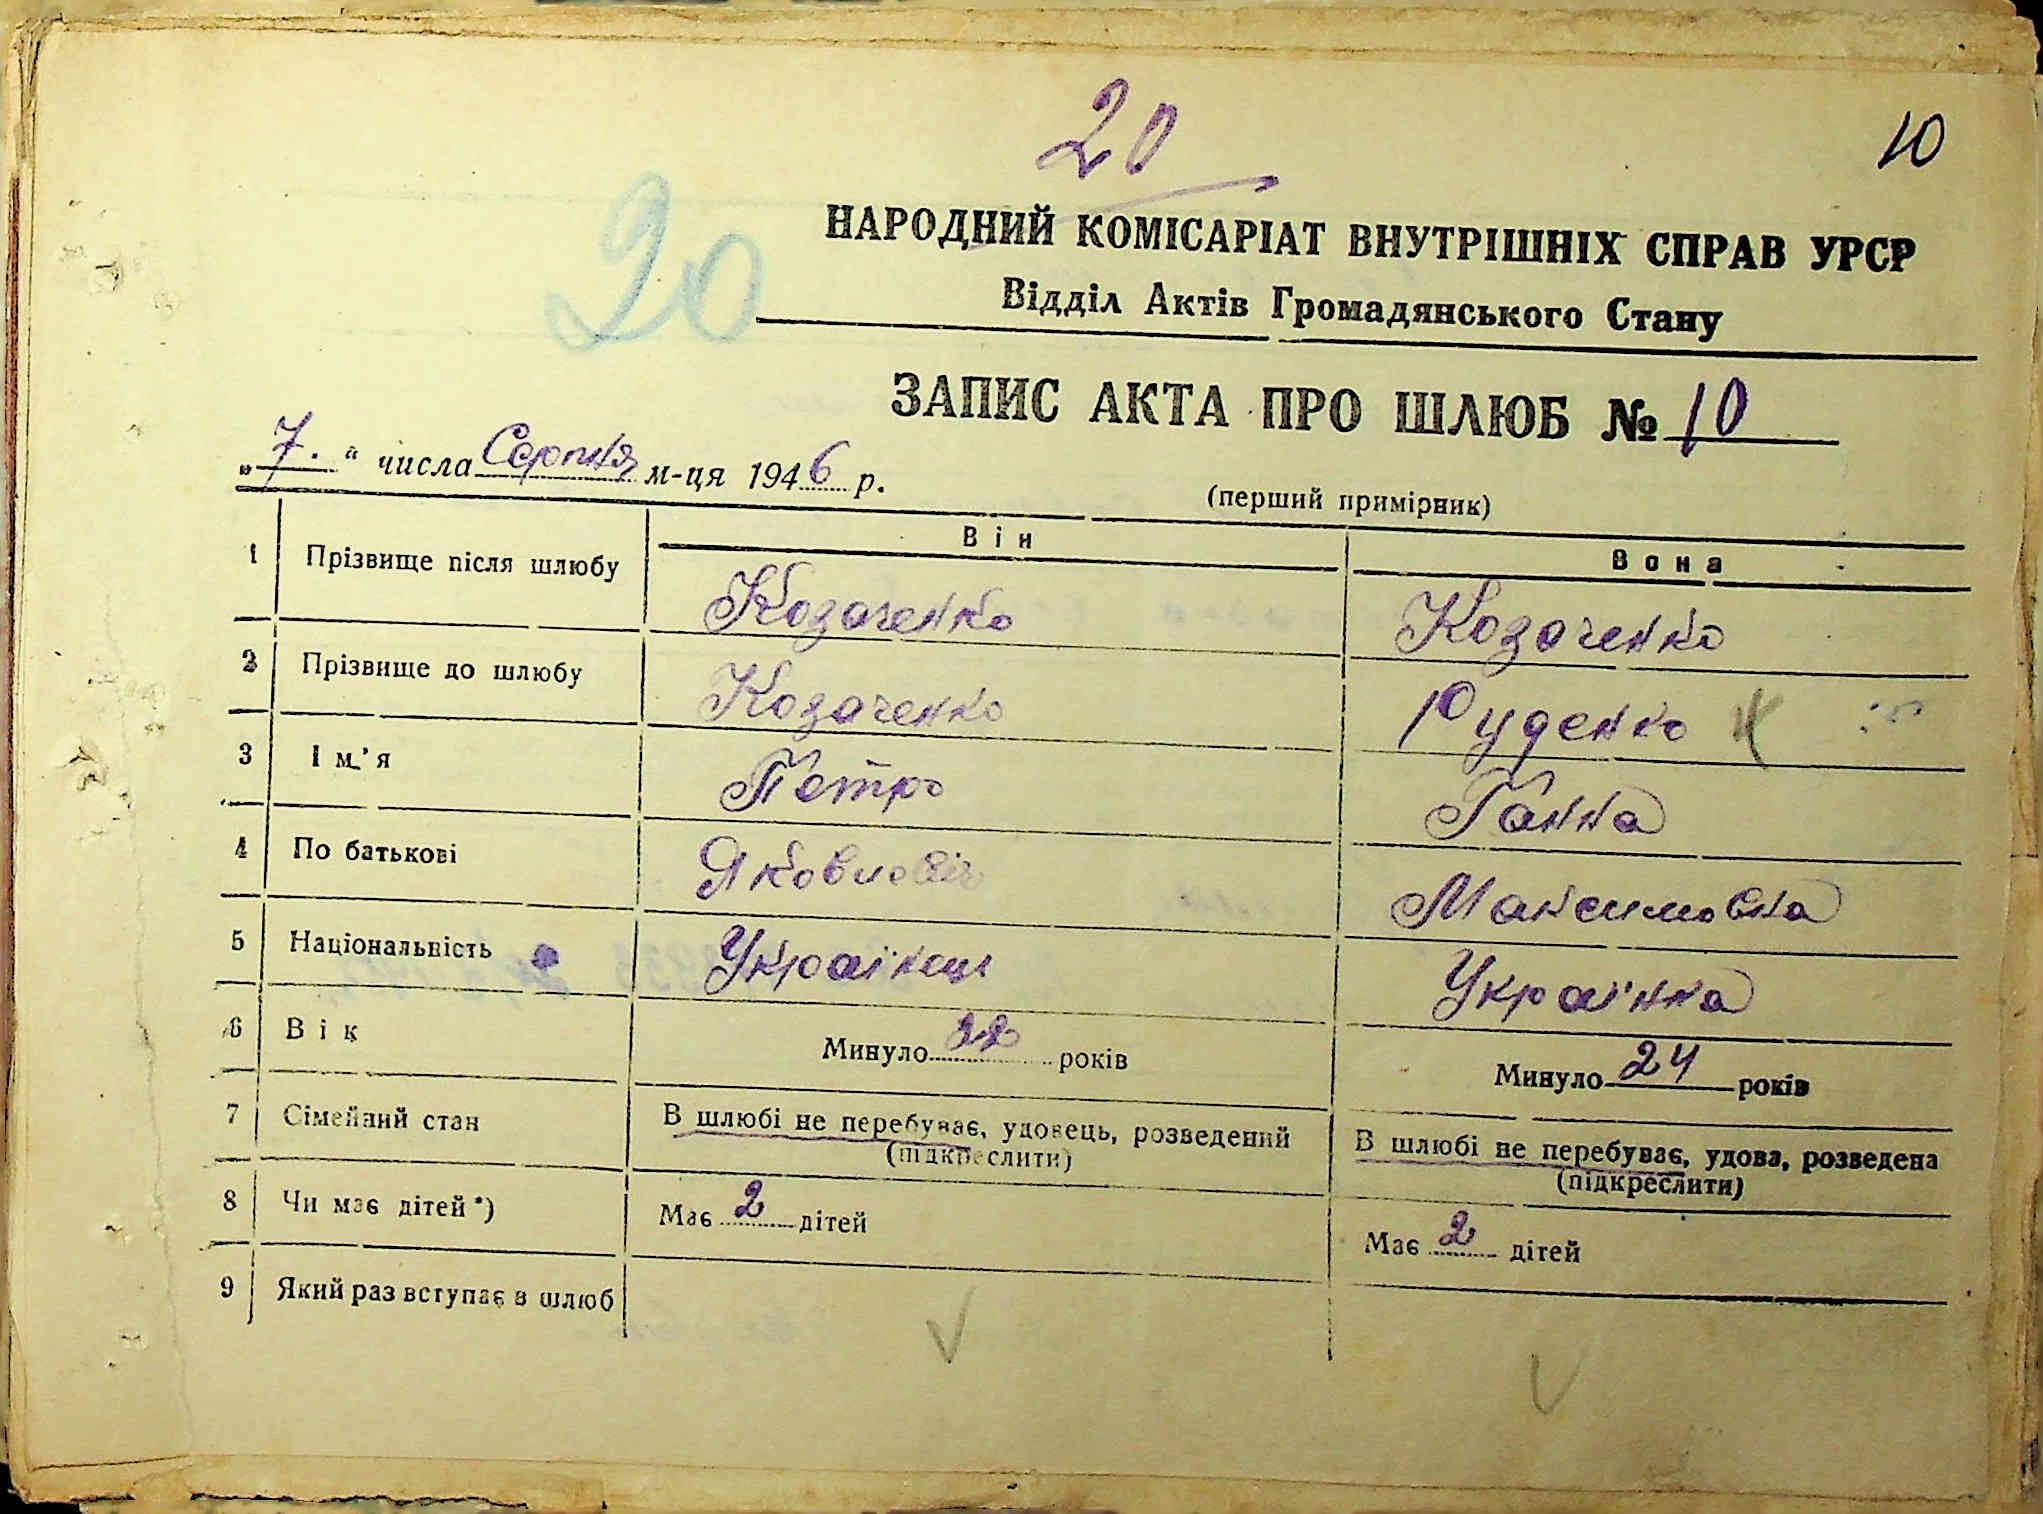 20
10
20
НАРОДНИЙ КОМІСАРІАТ ВНУТРІШНІХ СПРАВ УРСР
Відділ Актів Громадянського Стану
ЗАПИС АКТА ПРО ШЛЮБ № 10
„7.“ числа Серпня м-ця 1946 р.
(перший примірник)
Він Вона
1 Прізвище після шлюбу Козаченко Козаченко
2 Прізвище до шлюбу Козаченко Руденко
3 Ім'я Петро Ганна
4 По батькові Яковлевіч Максимовна
5 Національність Українець Українка
6 Вік Минуло років Минуло 24 років
7 Сімейний стан В шлюбі не перебуває, удовець, розведений В шлюбі не перебуває, удова, розведена
(підкреслити) (підкреслити)
8 Чи має дітей*) Має 2 дітей Має 2 дітей
9 Який раз вступає в шлюб